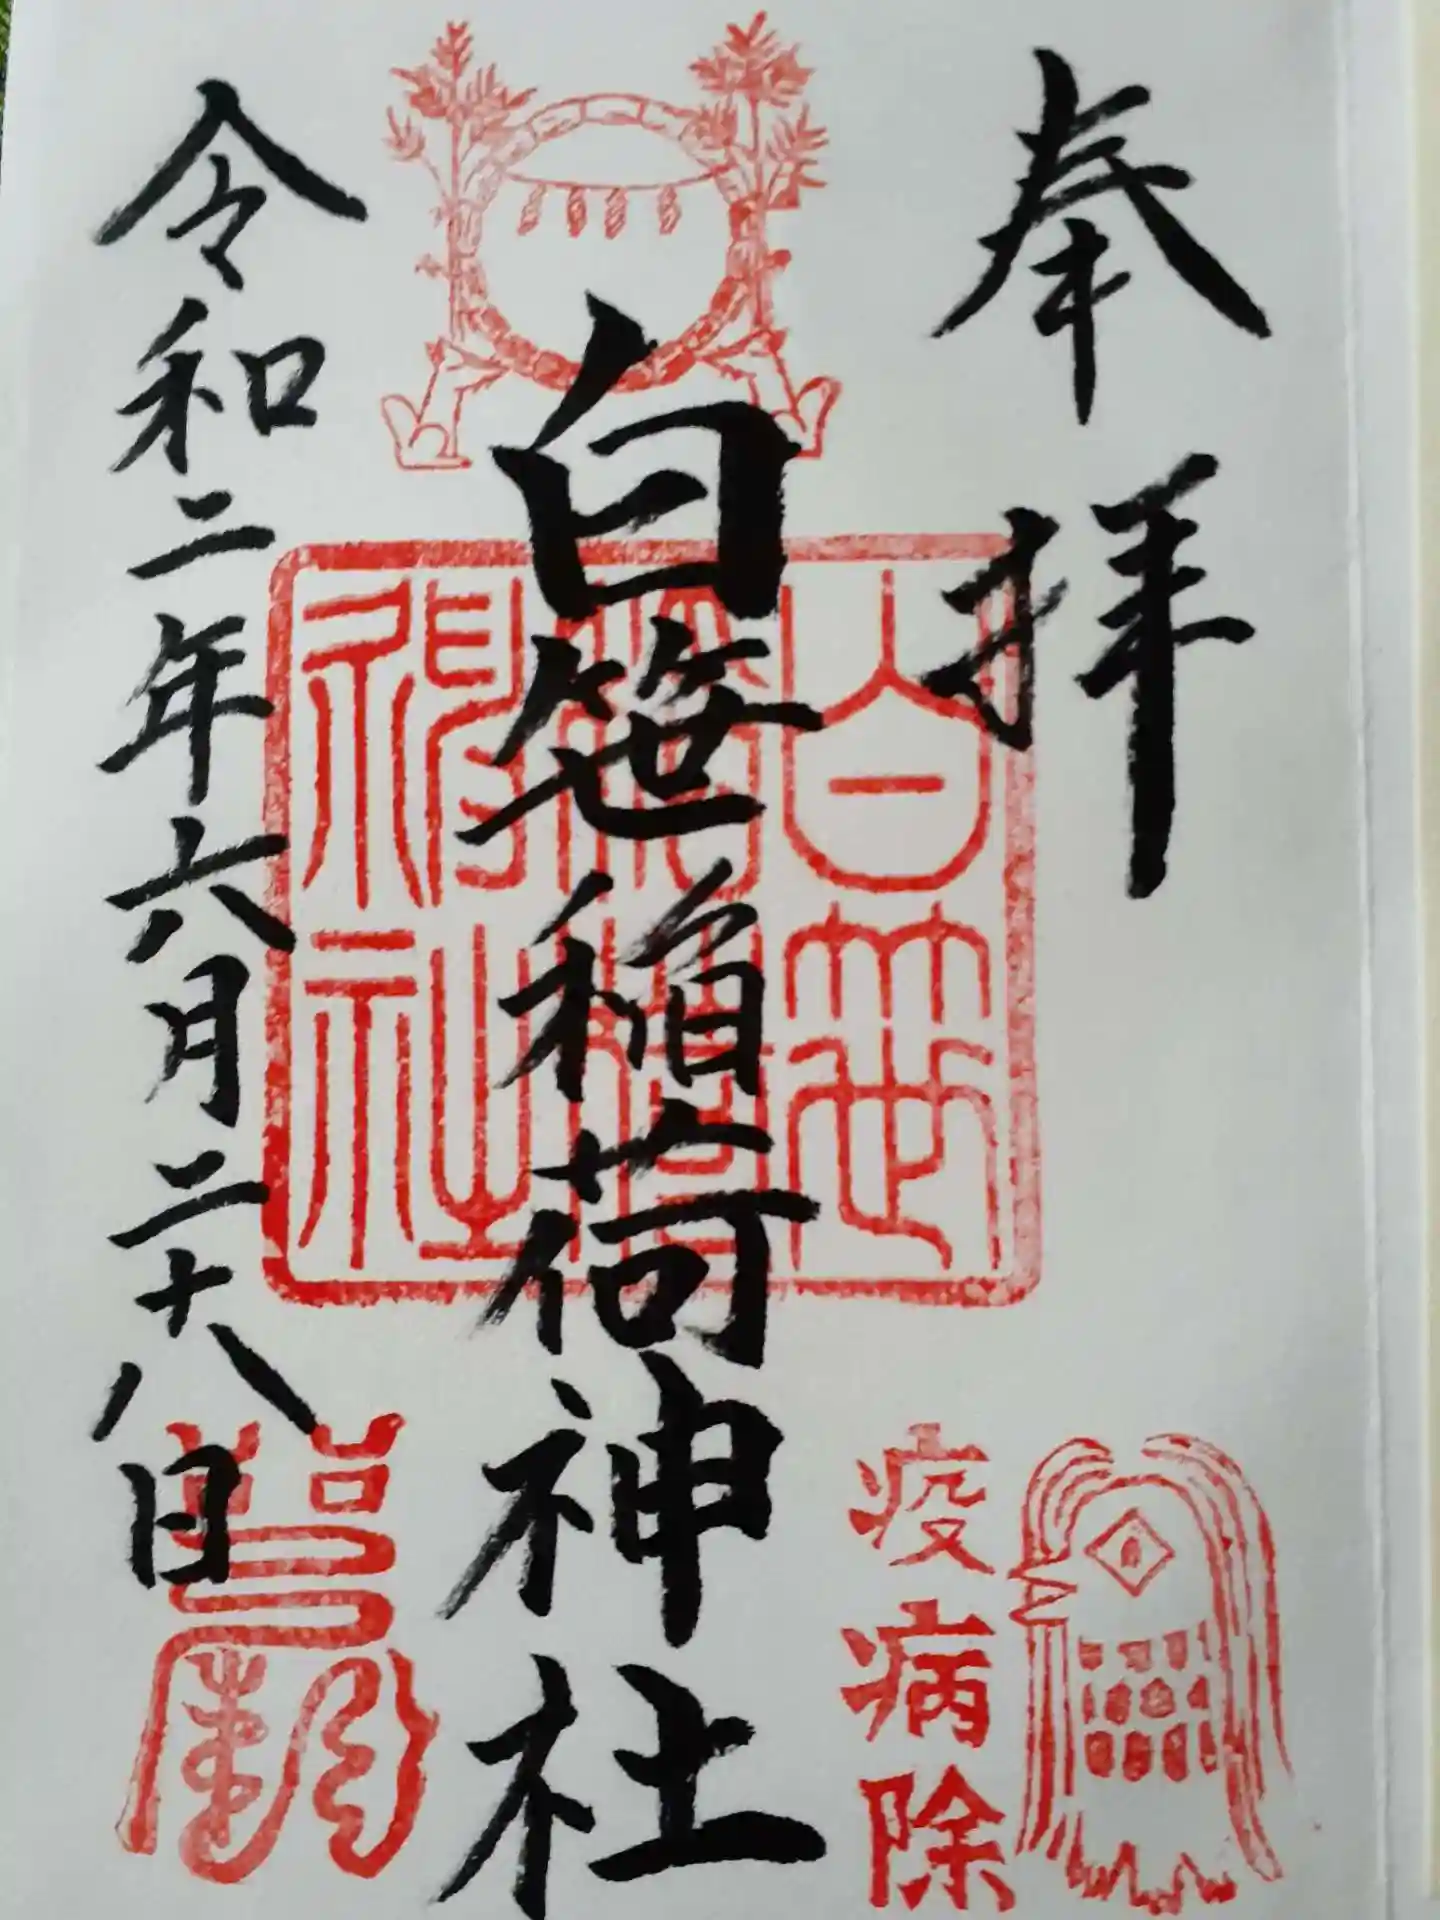 奉拝
白笹稲荷神社
白笹稲荷神社
疫病除
令和二年六月二十八日